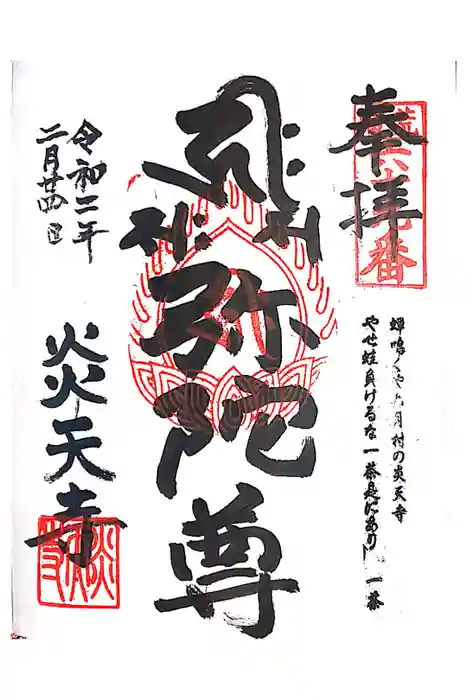 奉拝
蝉鳴くや六月村の炎天寺
やせ蛙負けるな一茶是にあり 一茶
弥陀尊
令和二年
二月廿四日
炎天寺